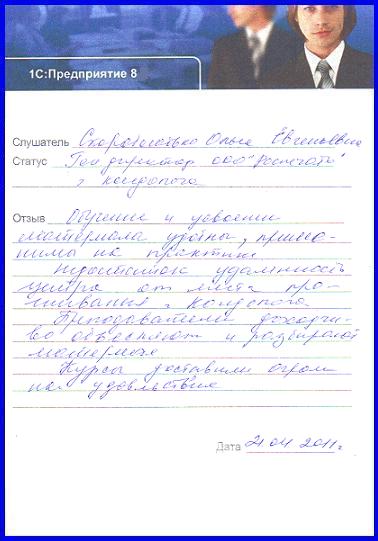 1С:Предприятие 8
Слушатель Скоробогатько Ольга Евгеньевна
Статус Ген директор ООО "Роспечать"
г Кондопога
Отзыв Обучение и усвоение
материала удобны, приме-
нимы на практике
Недостаток удаленность
центра от места про-
живания г Кондопога
Преподаватели доходчи-
во объясняют и разбирают
материал
Курсы доставили огром
ное удовольствие
Дата 21 04 2011г